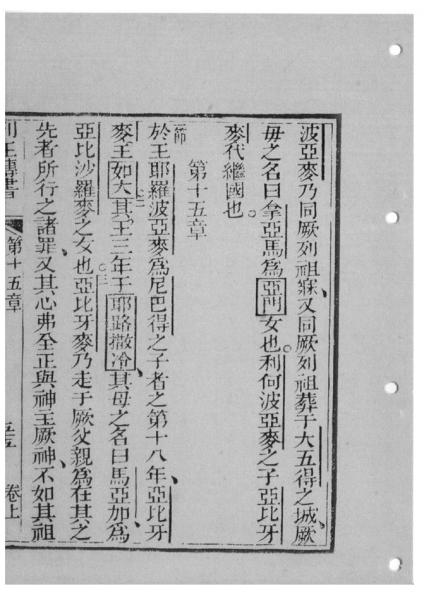 波亞麥乃同厥列祖寐又同厥列祖葬于大五得之城厥
毋之名曰拿亞馬爲亞門女也利何波亞麥之子亞比牙
麥代繼國也
第十五章
一節 於王耶羅波亞麥爲尼巴得之子者之第十八年亞比牙
麥王如大其王三年于耶路撒冷其母之名曰馬亞加爲
亞比沙羅麥之女也亞比牙麥乃走于厥父親爲在其之
先者所行之諸罪又其心弗全正與神主厥神不如其祖
列王傳書 第十五章 五五 卷上